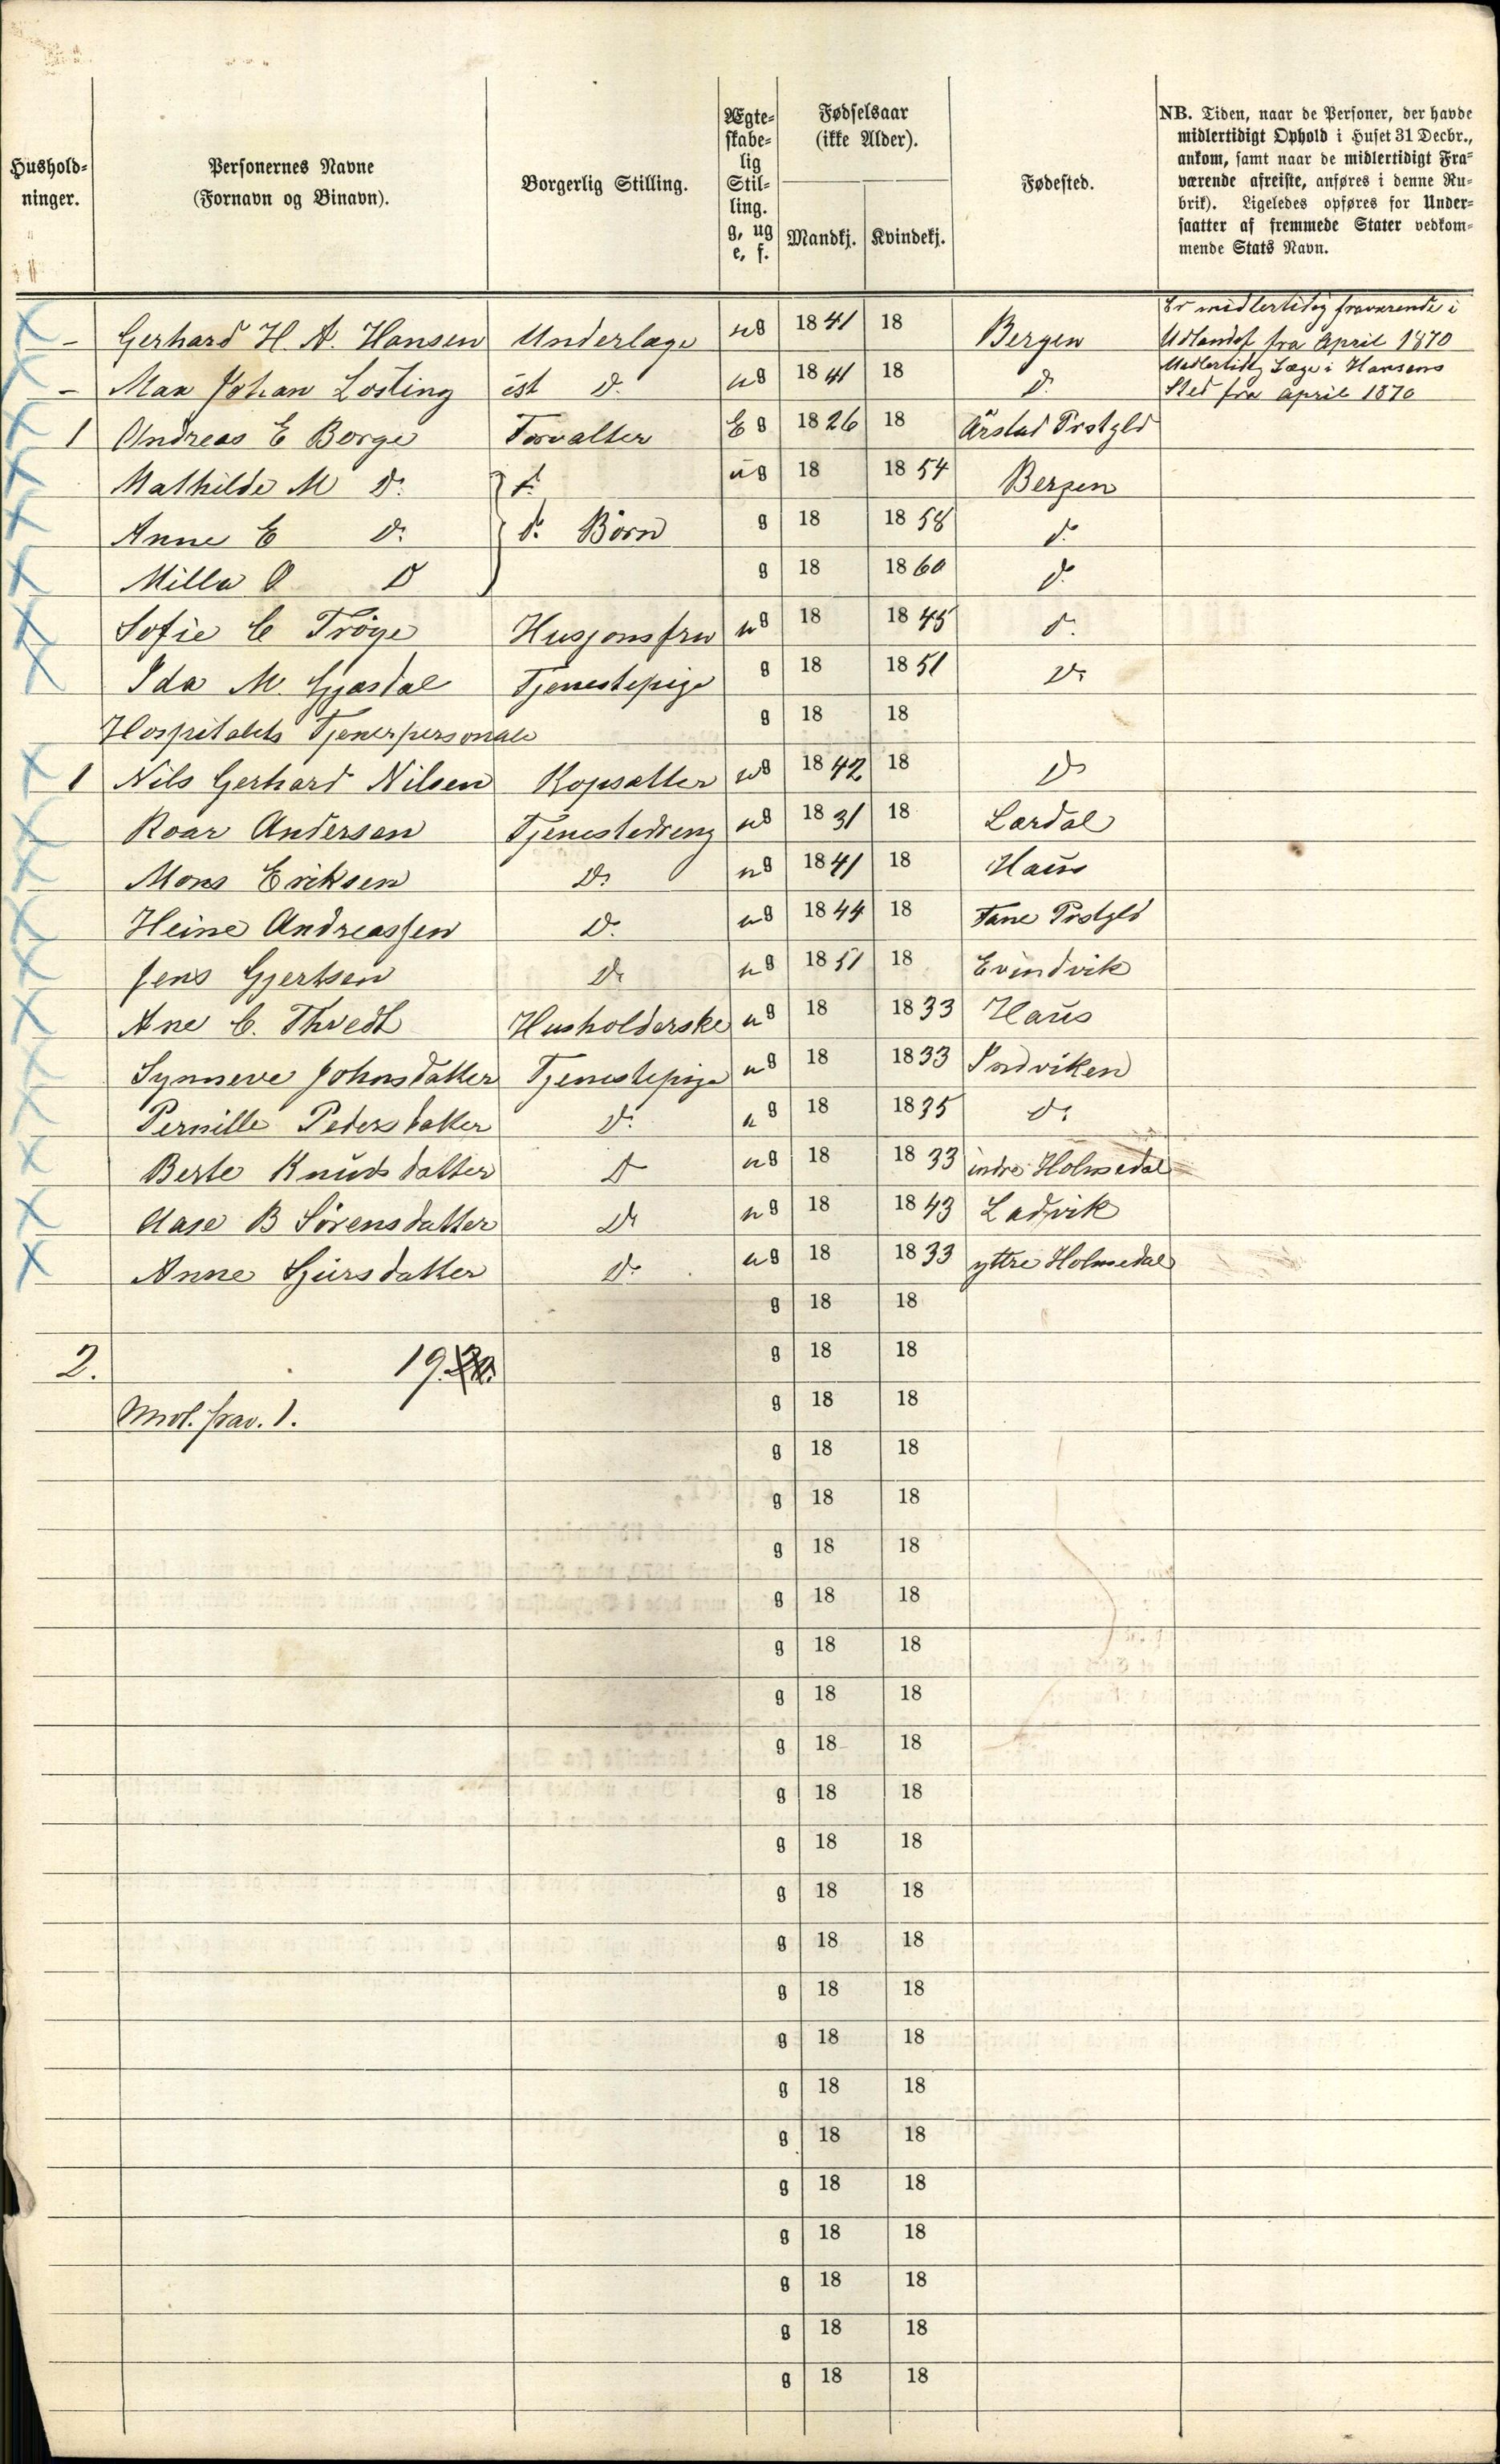 Hushold-
ninger.
Personernes Navne
(Fornavn og Binavn).
Borgerlig Stilling.
Ægte-
skabe-
lig
Stil-
ling.
g, ug
e, f.
Fødselsaar
(ikke Alder).
Mandkj. Kvindekj.
Fødested.
NB. Tiden, naar de Personer, der havde
midlertidigt Ophold i Huset 31 Decbr.,
ankom, samt naar de midlertidigt Fra-
værende afreiste, anføres i denne Ru-
brik). Ligeledes opføres for Under-
saatter af fremmede Stater vedkom-
mende Stats Navn.
Er midlertidig fraværende i
– Gerhard H. A. Hansen Underlæge ug 1841 18 Bergen Udlandet fra April 1870
Midlertidig Læge i Hansens
– Max Johan Losting cst D. ug 1841 18 D. Sted fra april 1870
1 Andreas E Borge Forvalter E g 1826 18 Årstad Prstgld
Mathilde M D. d. ug 18 1854 Bergen
Anne E D. d. Børn g 18 1858 d.
Milla O D g 18 1860 d.
Sofie C Trøye Husjomsfru ug 18 1845 d.
Ida M. Gjæsdal Tjenestepige g 18 1851 D.
Hospitalets Tjenerpersonale g 18 18
1 Nils Gerhard Nilsen Kopsætter ug 1842 18 D
Roar Andersen Tjenestedreng ug 1831 18 Lærdal
Mons Eriksen D. ug 1841 18 Haus
Heine Andreassen D. ug 1844 18 Fane Prstgld
Jens Gjertsen D. ug 1851 18 Evindvik
Ane C. Thvedt Husholderske ug 18 1833 Haus
Synneve Johnsdatter Tjenestepige ug 18 1833 Indviken
Pernille Pedersdatter D. ug 18 1835 D.
Berte Knudsdatter D ug 18 1833 indre Holmedal
Aase B Sørensdatter D ug 18 1843 Ladvik
Anne Sjursdatter D. ug 18 1833 yttre Holmedal
g 18 18
2. 19. g 18 18
Mdl. frav. 1. g 18 18
g 18 18
g 18 18
g 18 18
g 18 18
g 18 18
g 18 18
g 18 18
g 18 18
g 18 18
g 18 18
g 18 18
g 18 18
g 18 18
g 18 18
g 18 18
g 18 18
g 18 18
g 18 18
g 18 18
g 18 18